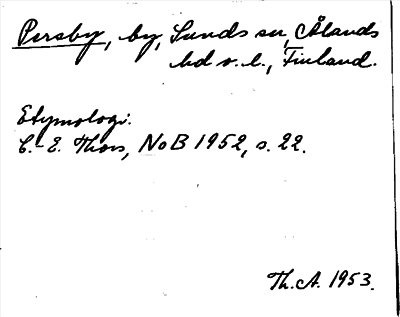 Persby, by, Sunds sn, Ålands
hd o. l., Finland.
Etymologi.
C.-E. Thors, NoB 1952, s. 22.
Th. A. 1953.